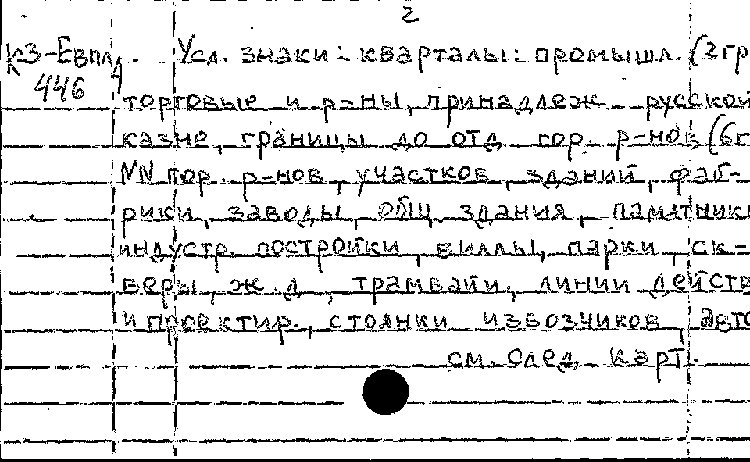 2
К3-Евпл. Усл. знаки: кварталы: промышл. (2гр
А
446
торговые и р-ны, принадлеж. русской
казне, границы до отд. гор. р-нов (6г
NN гор. р-нов, участков, зданий, фаб-
рики, заводы, общ. здания, памятники
индустр. постройки, виллы, парки, ск-
веры, ж.д., трамвайи, линии действ
и проектир., стоянки извозчиков, авто
см. след. карт.